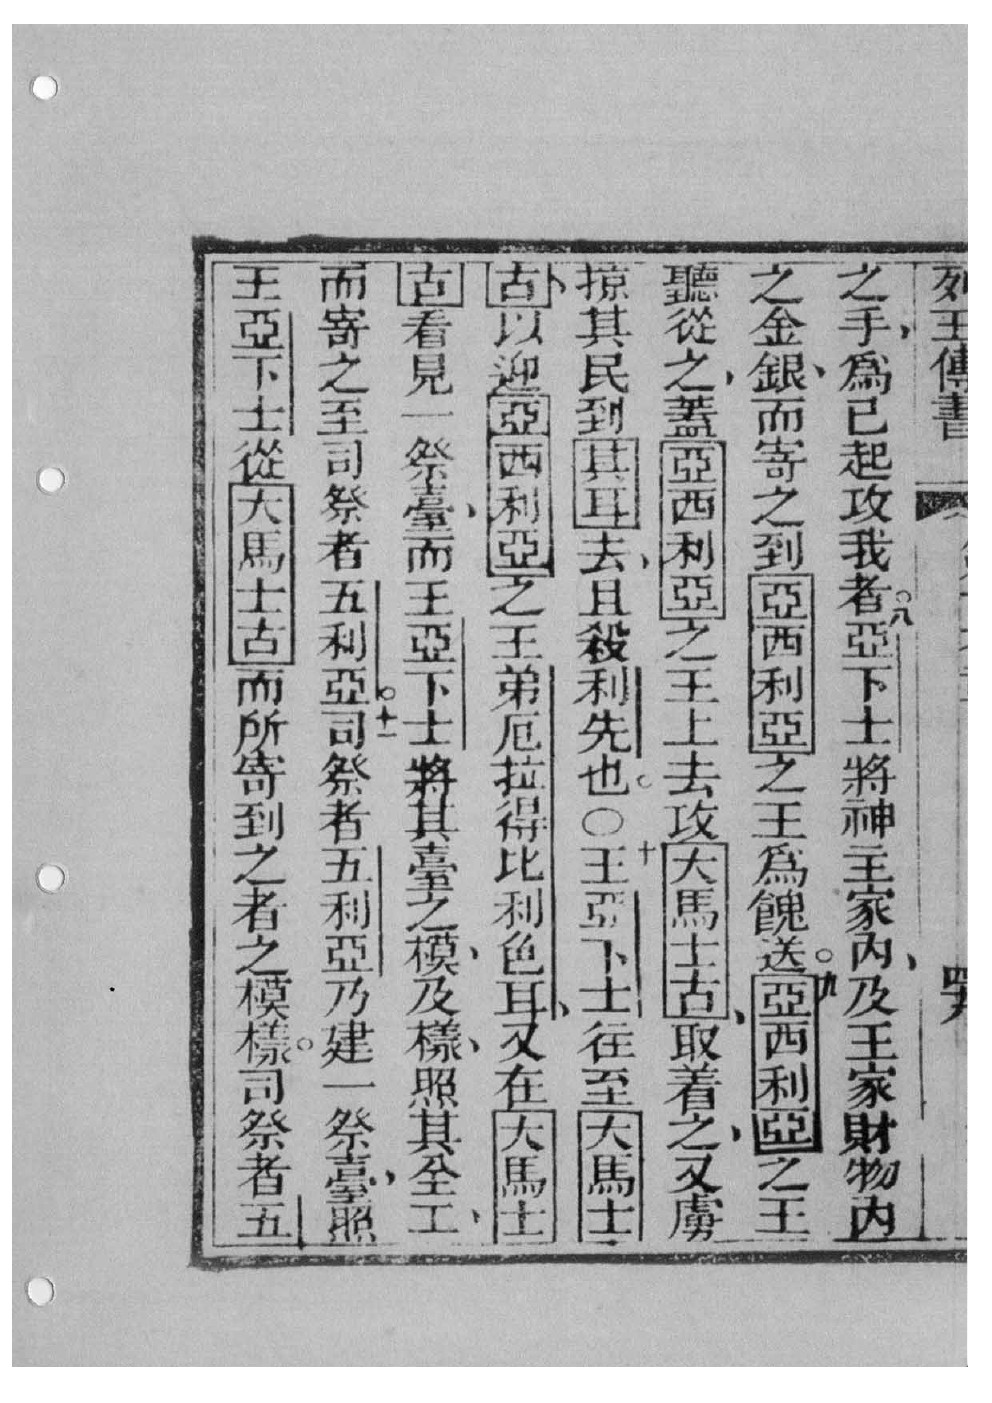 列王傳書
之手、爲已起攻我者。八亞下士將神主家內、及王家財物內
之金銀、而寄之到亞西利亞之王爲餽送。九亞西利亞之王
聽從之、蓋亞西利亞之王上去攻大馬士古、取着之、又虜
掠其民到其耳去、且殺利先也。〇十王亞下士往至大馬士
古、以迎亞西利亞之王弟厄拉得比利色耳、又在大馬士
古看見一祭臺、而王亞下士將其臺之模、及樣、照其全工、
而寄之至司祭者五利亞。十一司祭者五利亞乃建一祭臺、照
王亞下士從大馬士古而所寄到之者之模樣。司祭者五